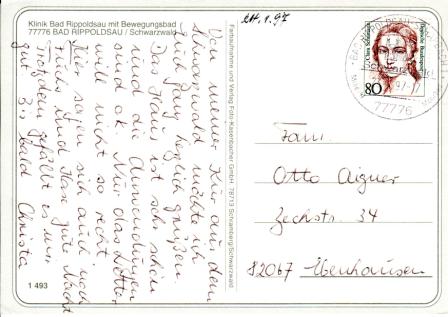 Klinik Bad Rippoldsau mit Bewegungsbad
77776 BAD RIPPOLDSAU / Schwarzwald
Von meiner Kur aus dem
Schwarzwald möchte ich
Euch ganz herzlich grüßen.
Das Haus ist sehr schön
und die Anwendungen
sind ok. Nur das Wetter
will nicht so recht.
Hier sagen sich auch noch
Fuchs und Hase gute Nacht
Trotzdem gefällt es mir
gut Bis bald Christa
1 493
Farbaufnahme und Verlag Foto-Kasenbacher GmbH 78713 Schramberg/Schwarzwald
Deutsche Bundespost
80
77776
Fam.
Otto Aigner
Zechstr. 34
82067 Ebenhausen